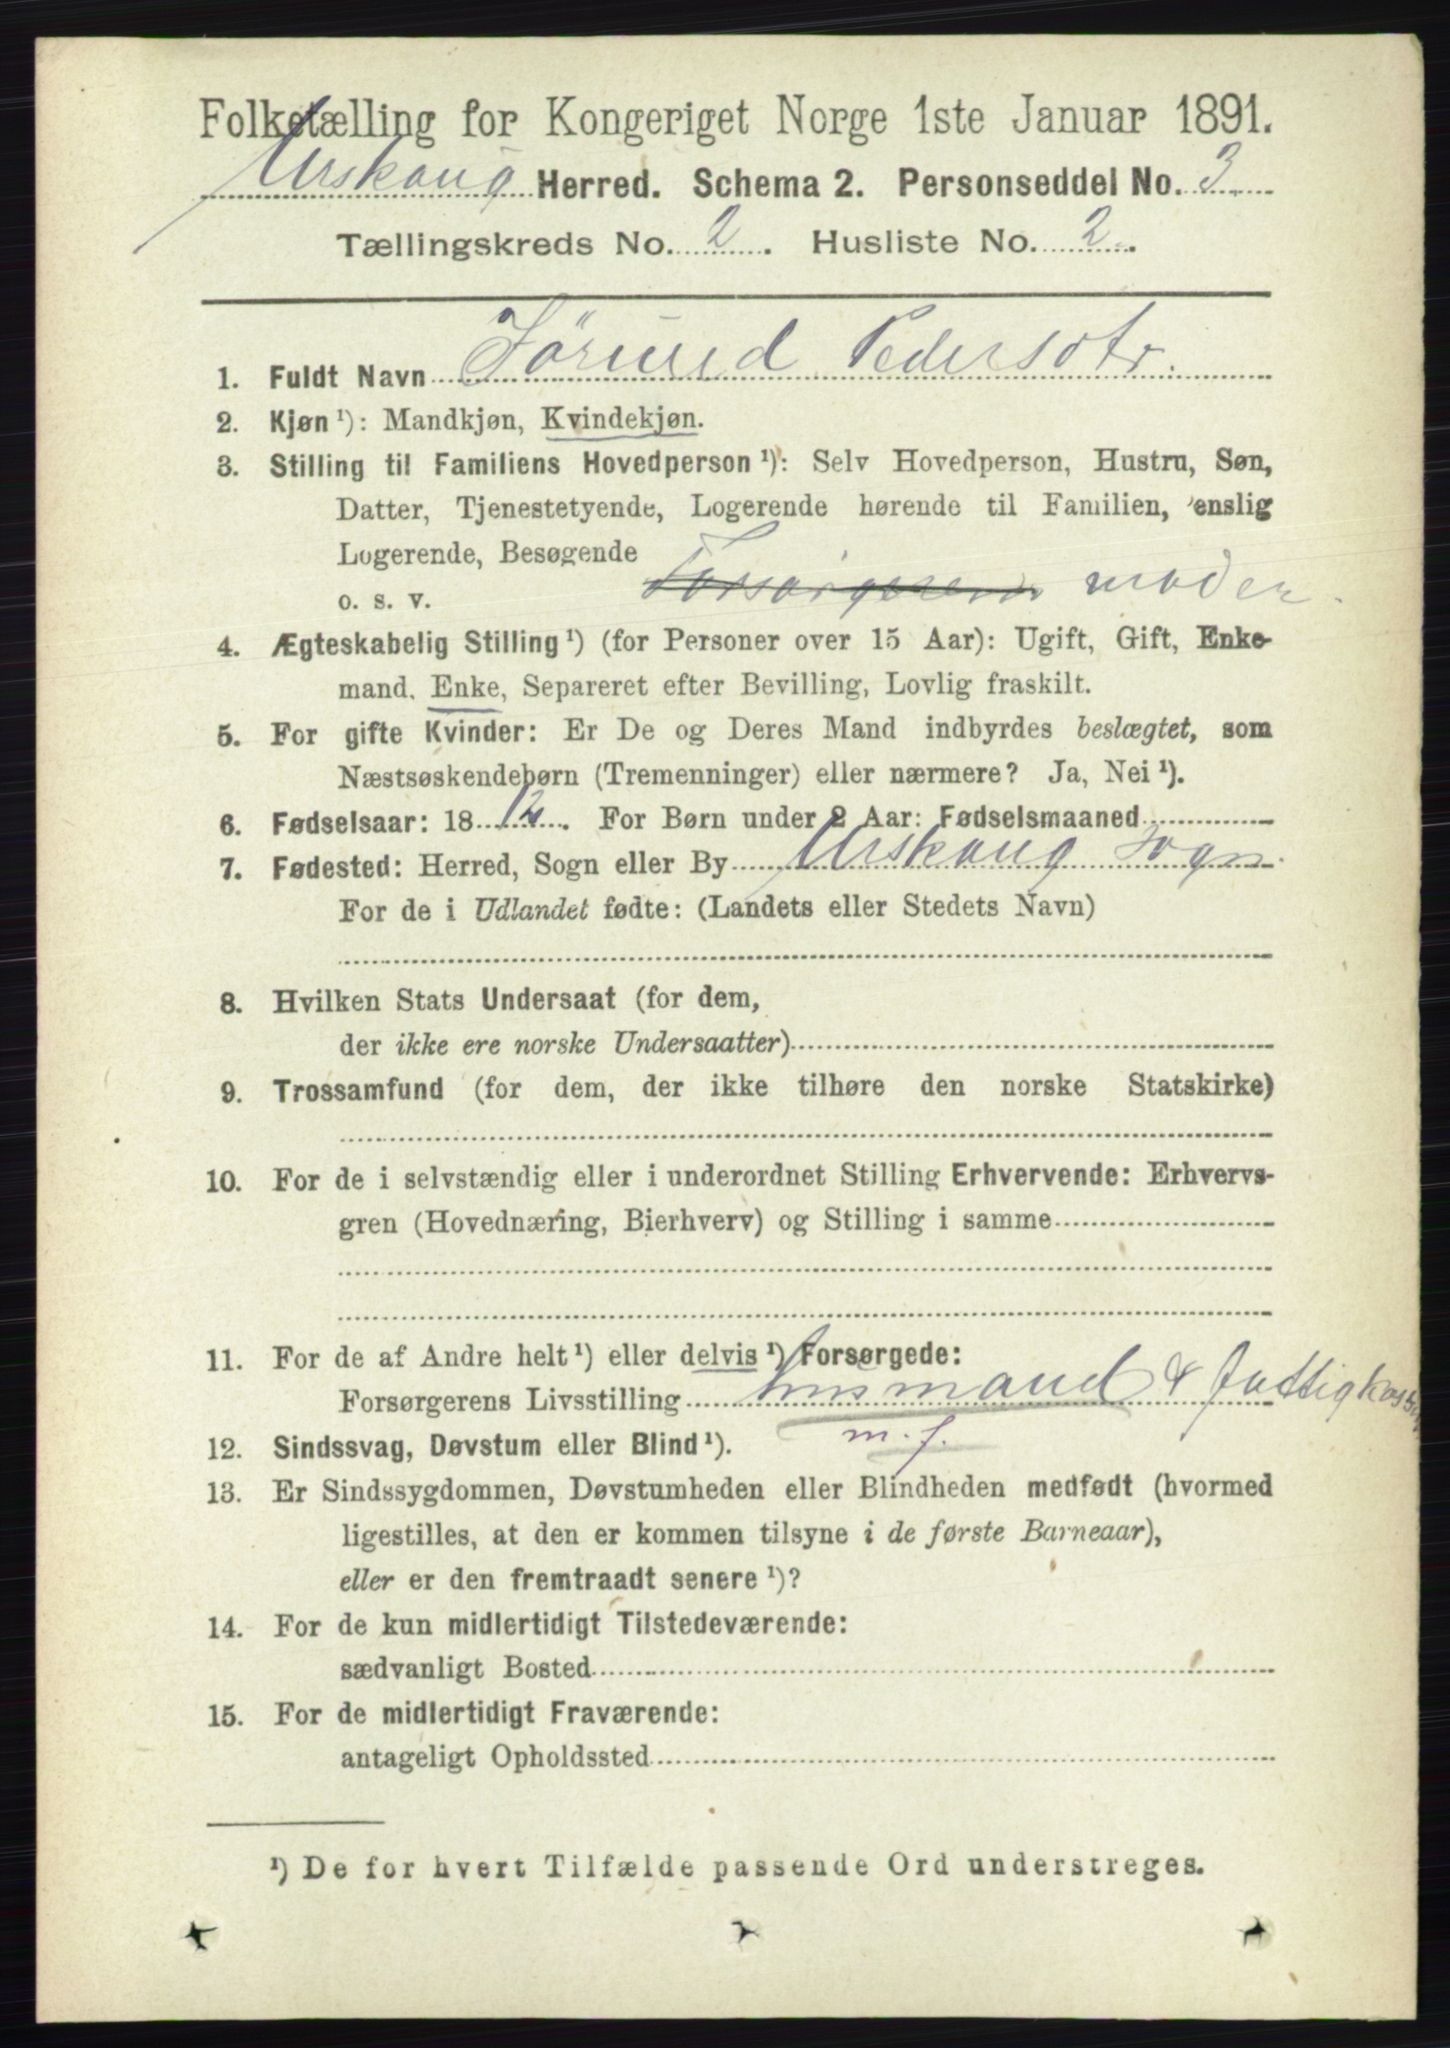 Folketælling for Kongeriget Norge 1ste Januar 1891.
Urskoug Herred. Schema 2. Personseddel No. 3
Tællingskreds No. 2. Husliste No. 2.
1. Fuldt Navn Jörund Pedersdtr.
2. Kjøn ¹): Mandkjøn, Kvindekjøn.
3. Stilling til Familiens Hovedperson ¹): Selv Hovedperson, Hustru, Søn,
Datter, Tjenestetyende, Logerende hørende til Familien, enslig
Logerende, Besøgende
o. s. v. Forsørgerens moder.
4. Ægteskabelig Stilling ¹) (for Personer over 15 Aar): Ugift, Gift, Enke-
mand, Enke, Separeret efter Bevilling, Lovlig fraskilt.
5. For gifte Kvinder: Er De og Deres Mand indbyrdes beslægtet, som
Næstsøskendebørn (Tremenninger) eller nærmere? Ja, Nei ¹).
6. Fødselsaar: 1812. For Børn under 2 Aar: Fødselsmaaned
7. Fødested: Herred, Sogn eller By Urskoug Sogn.
For de i Udlandet fødte: (Landets eller Stedets Navn)
8. Hvilken Stats Undersaat (for dem,
der ikke ere norske Undersaatter)
9. Trossamfund (for dem, der ikke tilhøre den norske Statskirke)
10. For de i selvstændig eller i underordnet Stilling Erhvervende: Erhvervs-
gren (Hovednæring, Bierhverv) og Stilling i samme
11. For de af Andre helt ¹) eller delvis ¹) Forsørgede:
Forsørgerens Livsstilling Husmand & fattigkassen
m. f.
12. Sindssvag, Døvstum eller Blind ¹).
13. Er Sindssygdommen, Døvstumheden eller Blindheden medfødt (hvormed
ligestilles, at den er kommen tilsyne i de første Barneaar),
eller er den fremtraadt senere ¹)?
14. For de kun midlertidigt Tilstedeværende:
sædvanligt Bosted
15. For de midlertidigt Fraværende:
antageligt Opholdssted
¹) De for hvert Tilfælde passende Ord understreges.